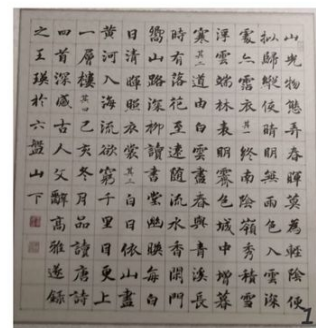 山光物態弄春暉莫為輕陰便
擬歸縱使晴明無雨色入雲深
處亦霑衣其一終南陰嶺秀積雪
浮雲端林表明霽色城中增暮
寒其二道由白雲盡春與青溪長
時有落花至遠隨流水香閑門
嚮山路深柳讀書堂幽映每白
日清輝照衣裳其三白日依山盡
黃河入海流欲窮千里目更上
一層樓其四己亥冬月品讀唐詩
四首深感古人文辭高雅遂錄
之王瑛於六盤山下
1